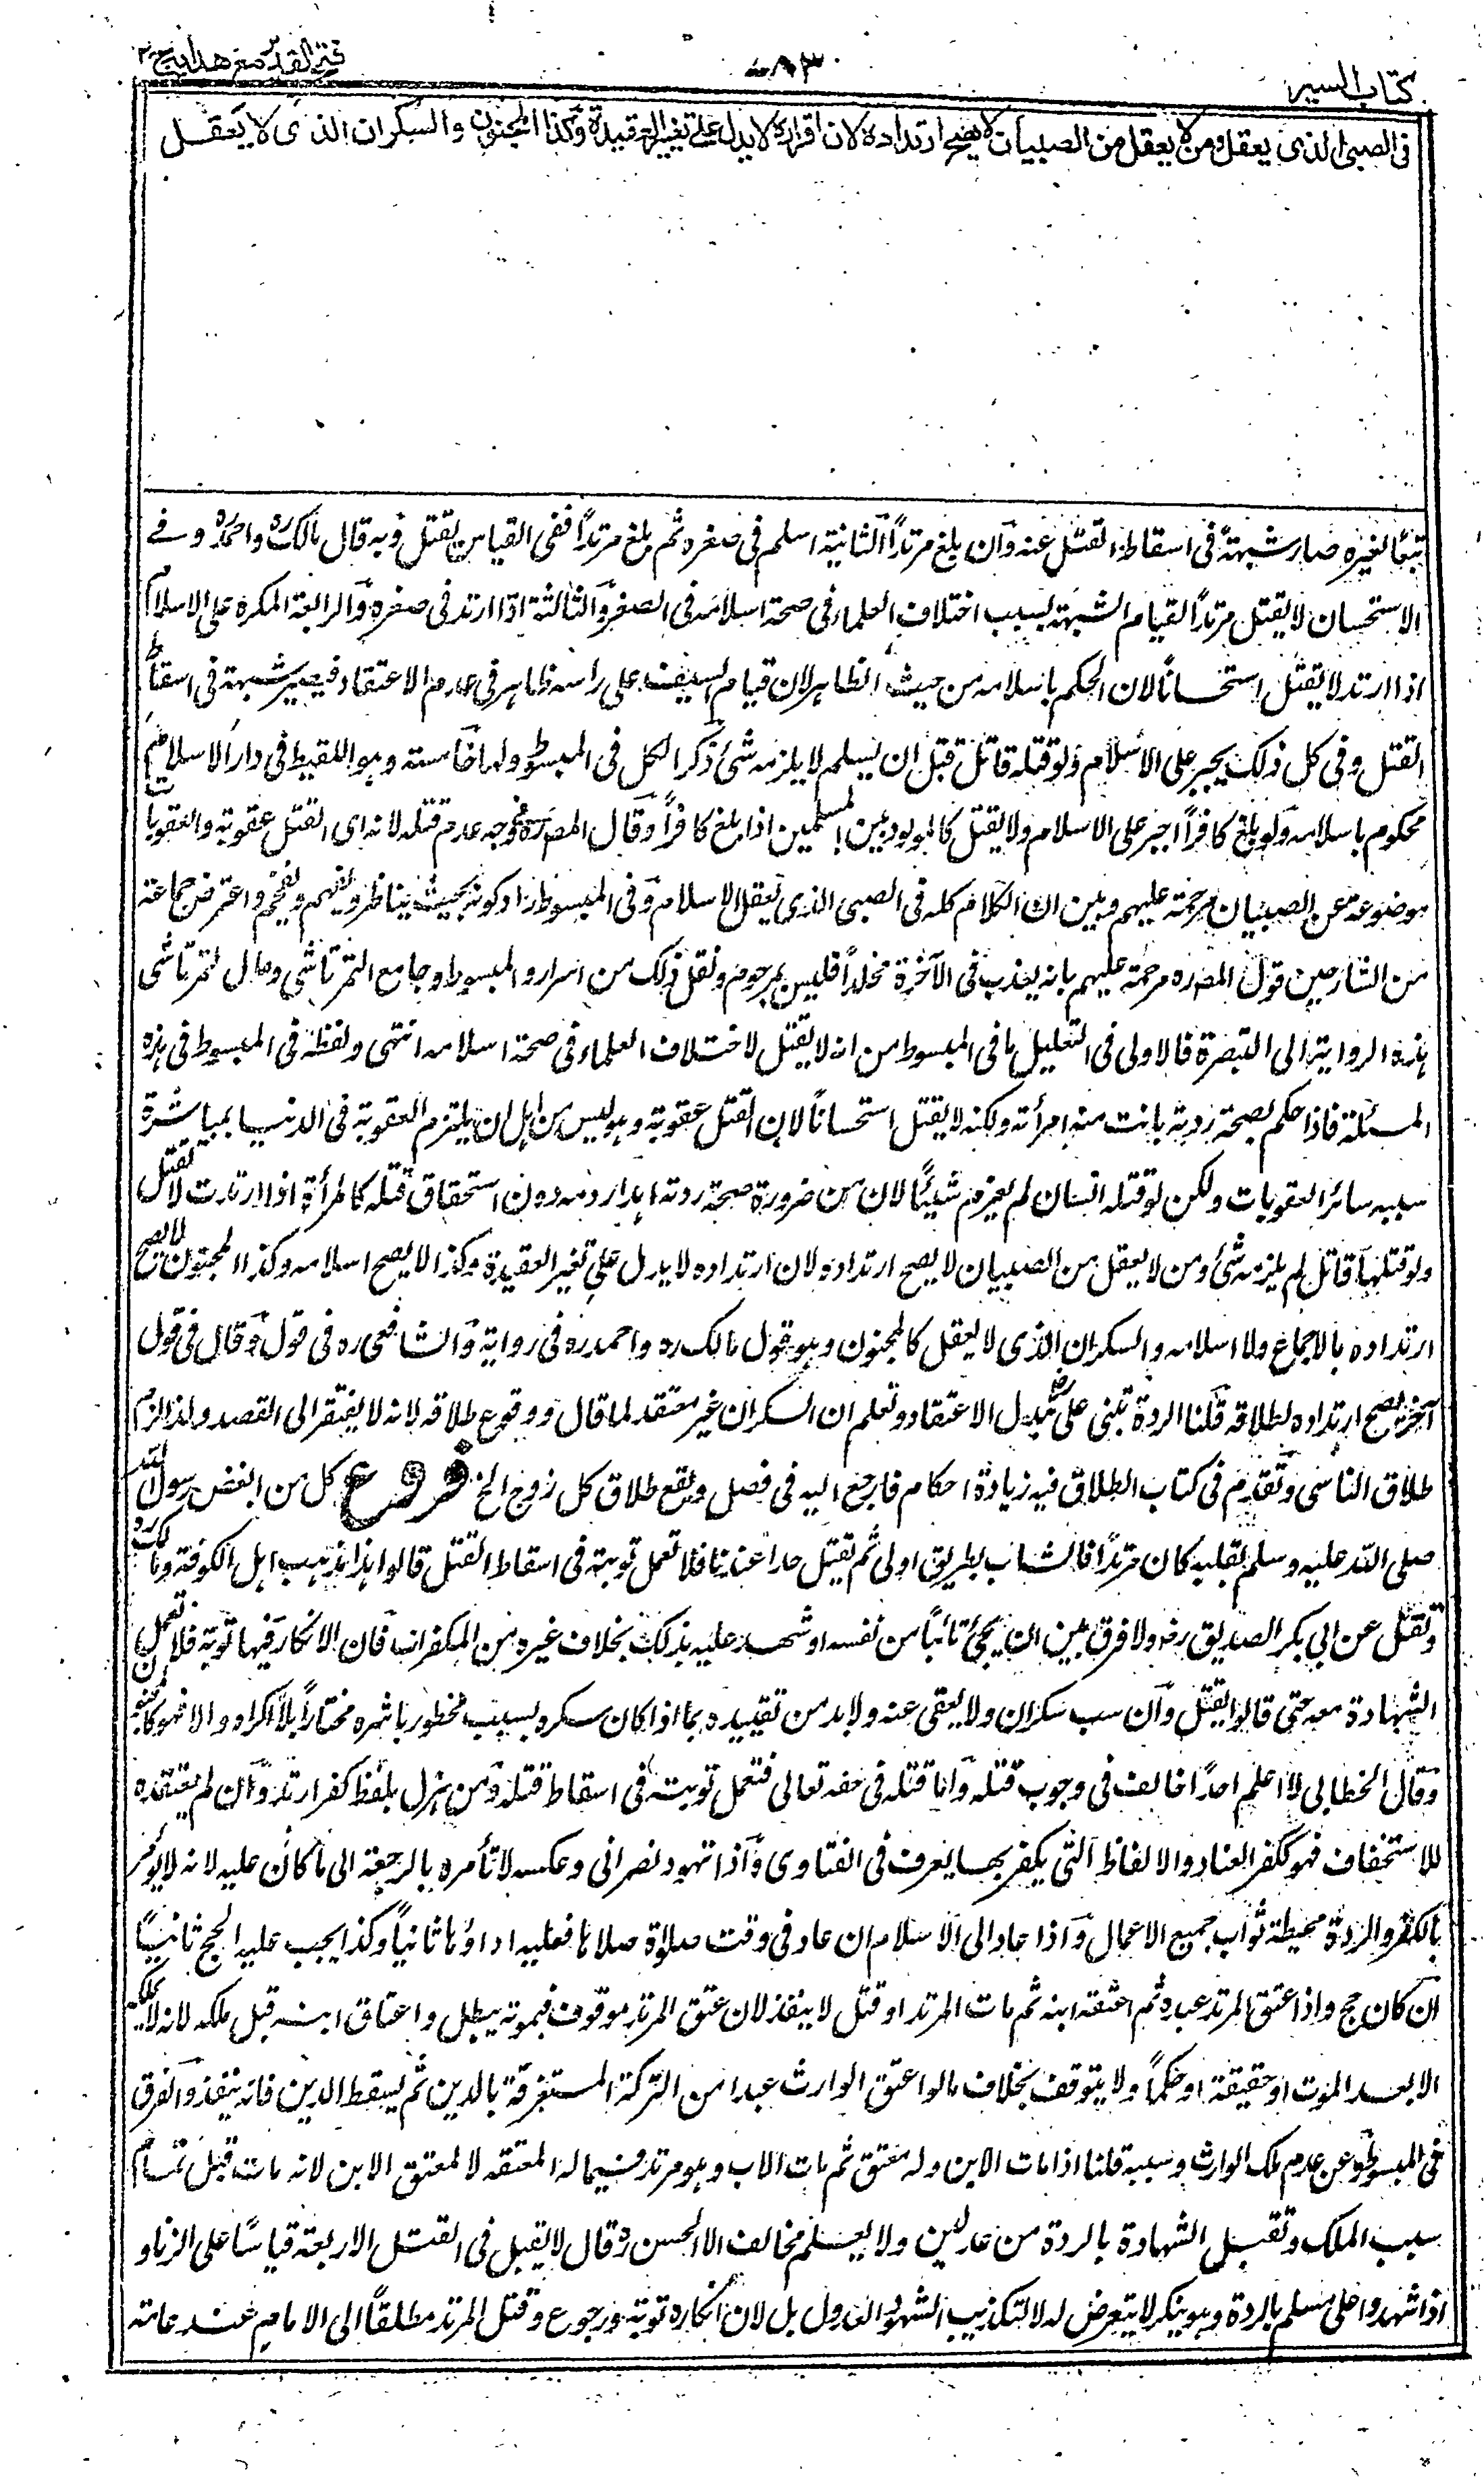 كتاب السير
٨٣
فتح القدير مع هدايه ج ٢
فى الصبى الذى يعقل ومن لا يعقل من الصبيان لا يصح ارتداده لان اقراره لا يدل على تغيير العقيدة وكذا المجنون والسكران الذى لا يعقل
تبعًا لغيره صار شبهةً فى اسقاط القتل عنه وان بلغ مرتدًا الثانية اسلم فى صغره ثم بلغ مرتدًا ففى القياس يقتل وبه قال مالك ره واحمد ره وفے
الاستحسان لا يقتل مرتدًا لقيام الشبهة بسبب اختلاف العلماء فى صحة اسلامه فى الصغر والثالثة اذا ارتد فى صغره والرابعة المكره على الاسلام
اذا ارتد لا يقتل استحسانًا لان الحكم باسلامه من حيث الظاهر لان قيام السيف على راسه ظاهر فى عدم الاعتقاد فيصير شبهة فى اسقاط
القتل وفى كل ذلك يجبر على الاسلام ولو قتله قاتل قبل ان يسلم لا يلزمه شئ ذكر الكل فى المبسوط ولها خامسة وهو اللقيط فى دار الاسلام
محكوم باسلامه ولو بلغ كافرًا اجبر على الاسلام ولا يقتل كالمولود بين المسلمين اذا بلغ كافرًا وقال المصره فوجه عدم قتله لانه اى القتل عقوبة والعقوبات
موضوعة عن الصبيان مرحمة عليهم وبين ان الكلام كله فى الصبى الذى يعقل الاسلام وفى المبسوط زاد كونه بحيث يناظر ويفهم ويفحم واعترض جماعة
من الشارحين قول المصره مرحمة عليهم بانه يعذب فى الآخرة مخلدًا فليس بمرحوم ونقل ذلك من اسرار والمبسوط وجامع التمرتاشى وحال التمرتاشى
هذه الرواية الى التبصرة فالاولى فى التعليل ما فى المبسوط من انه لا يقتل لاختلاف العلماء فى صحة اسلامه انتهى ولفظه فى المبسوط فى هذه
المسئلة فاذا حكم بصحة ردته بانت منه امرأته ولكنه لا يقتل استحسانًا لان القتل عقوبة وهو ليس من اهل ان يلتزم العقوبة فى الدنيا بمباشرة
سببه سائر العقوبات ولكن لو قتله انسان لم يغرم شيئًا لان من ضرورة صحة ردته اهدار دمه دون استحقاق قتله كالمرأة اذا ارتدت لا تقتل
ولو قتلها قاتل لم يلزمه شئ ومن لا يعقل من الصبيان لا يصح ارتداده لان ارتداده لا يدل على تغير العقيدة وكذا لا يصح اسلامه وكذا المجنون لا يصح
ارتداده بالاجماع ولا اسلامه والسكران الذى لا يعقل كالمجنون وهو قول مالك ره واحمد ره فى رواية والشافعى ره فى قول وقال فى قول
آخر يصح ارتداده لطلاقه قلنا الردة تبنى على تبدل الاعتقاد ونعلم ان السكران غير معتقد لما قال ووقوع طلاقه لانه لا يفتقر الى القصد ولذا لزم
طلاق الناسى وتقدم فى كتاب الطلاق فيه زيادة احكام فارجع اليه فى فصل ويقع طلاق كل زوج الخ فروع كل من ابغض رسول الله
صلى الله عليه وسلم بقلبه كان مرتدًا فالساب بطريق اولى ثم يقتل حدا عندنا فلا تعمل توبته فى اسقاط القتل قالوا هذا مذهب اهل الكوفة ومالك ره
ونقل عن ابى بكر الصديق رضه ولا فرق بين ان يجئ تائبًا من نفسه او شهد عليه بذلك بخلاف غيره من المكفرات فان الانكار فيها توبة فلا تعمل
الشهادة معه حتى قالوا يقتل وان سب سكران ولا يعفى عنه ولابد من تقييده بما اذا كان سكره بسبب محظور باشره مختارًا بلا اكراه والا فهو كالمجنون
وقال الخطابى لا اعلم احدًا خالف فى وجوب قتله واما قتله فى حقه تعالى فتعمل توبته فى اسقاط قتله ومن هزل بلفظ كفر ارتد وان لم يعتقده
للاستخفاف فهو ككفر العناد والالفاظ التى يكفر بها يعرف فى الفتاوى واذا تهود نصرانى وعكسه لا تأمره بالرجعة الى ما كان عليه لانه لا يؤمر
بالكفر والردة محبطة ثواب جميع الاعمال واذا عاد الى الاسلام ان عاد فى وقت صلاة صلاها فعليه اداؤها ثانياً وكذا يجب عليه الحج ثانيًا
ان كان حج واذا اعتق المرتد عبده ثم اعتقه ابنه ثم مات المرتد او قتل لا ينفذ لان عتق المرتد موقوف فبموته يبطل واعتاق ابنه قبل ملكه لانه لا يملكه
الا بعد الموت او حقيقة او حكمًا ولا يتوقف بخلاف ما لو اعتق الوارث عبدا من التركة المستغرقة بالدين ثم يسقط الدين فانه ينفذ والفرق
فى المبسوط وعن عدم ملك الوارث وسببه قلنا اذا مات الابن وله معتق ثم مات الاب وهو مرتد فيماله لمعتقه لا لمعتق الابن لانه مات قبل تمام
سبب الملك وتقبل الشهادة بالردة من عدلين ولا يعلم مخالف الا الحسن ره قال لا يقبل فى القتل الا اربعة قياسًا على الزنا و
اذا شهدوا على مسلم بالردة وهو ينكر لا يتعرض له لا لتكذيب الشهود العدول بل لان انكاره توبة ورجوع وقتل المرتد مطلقًا الى الامام عند عامة